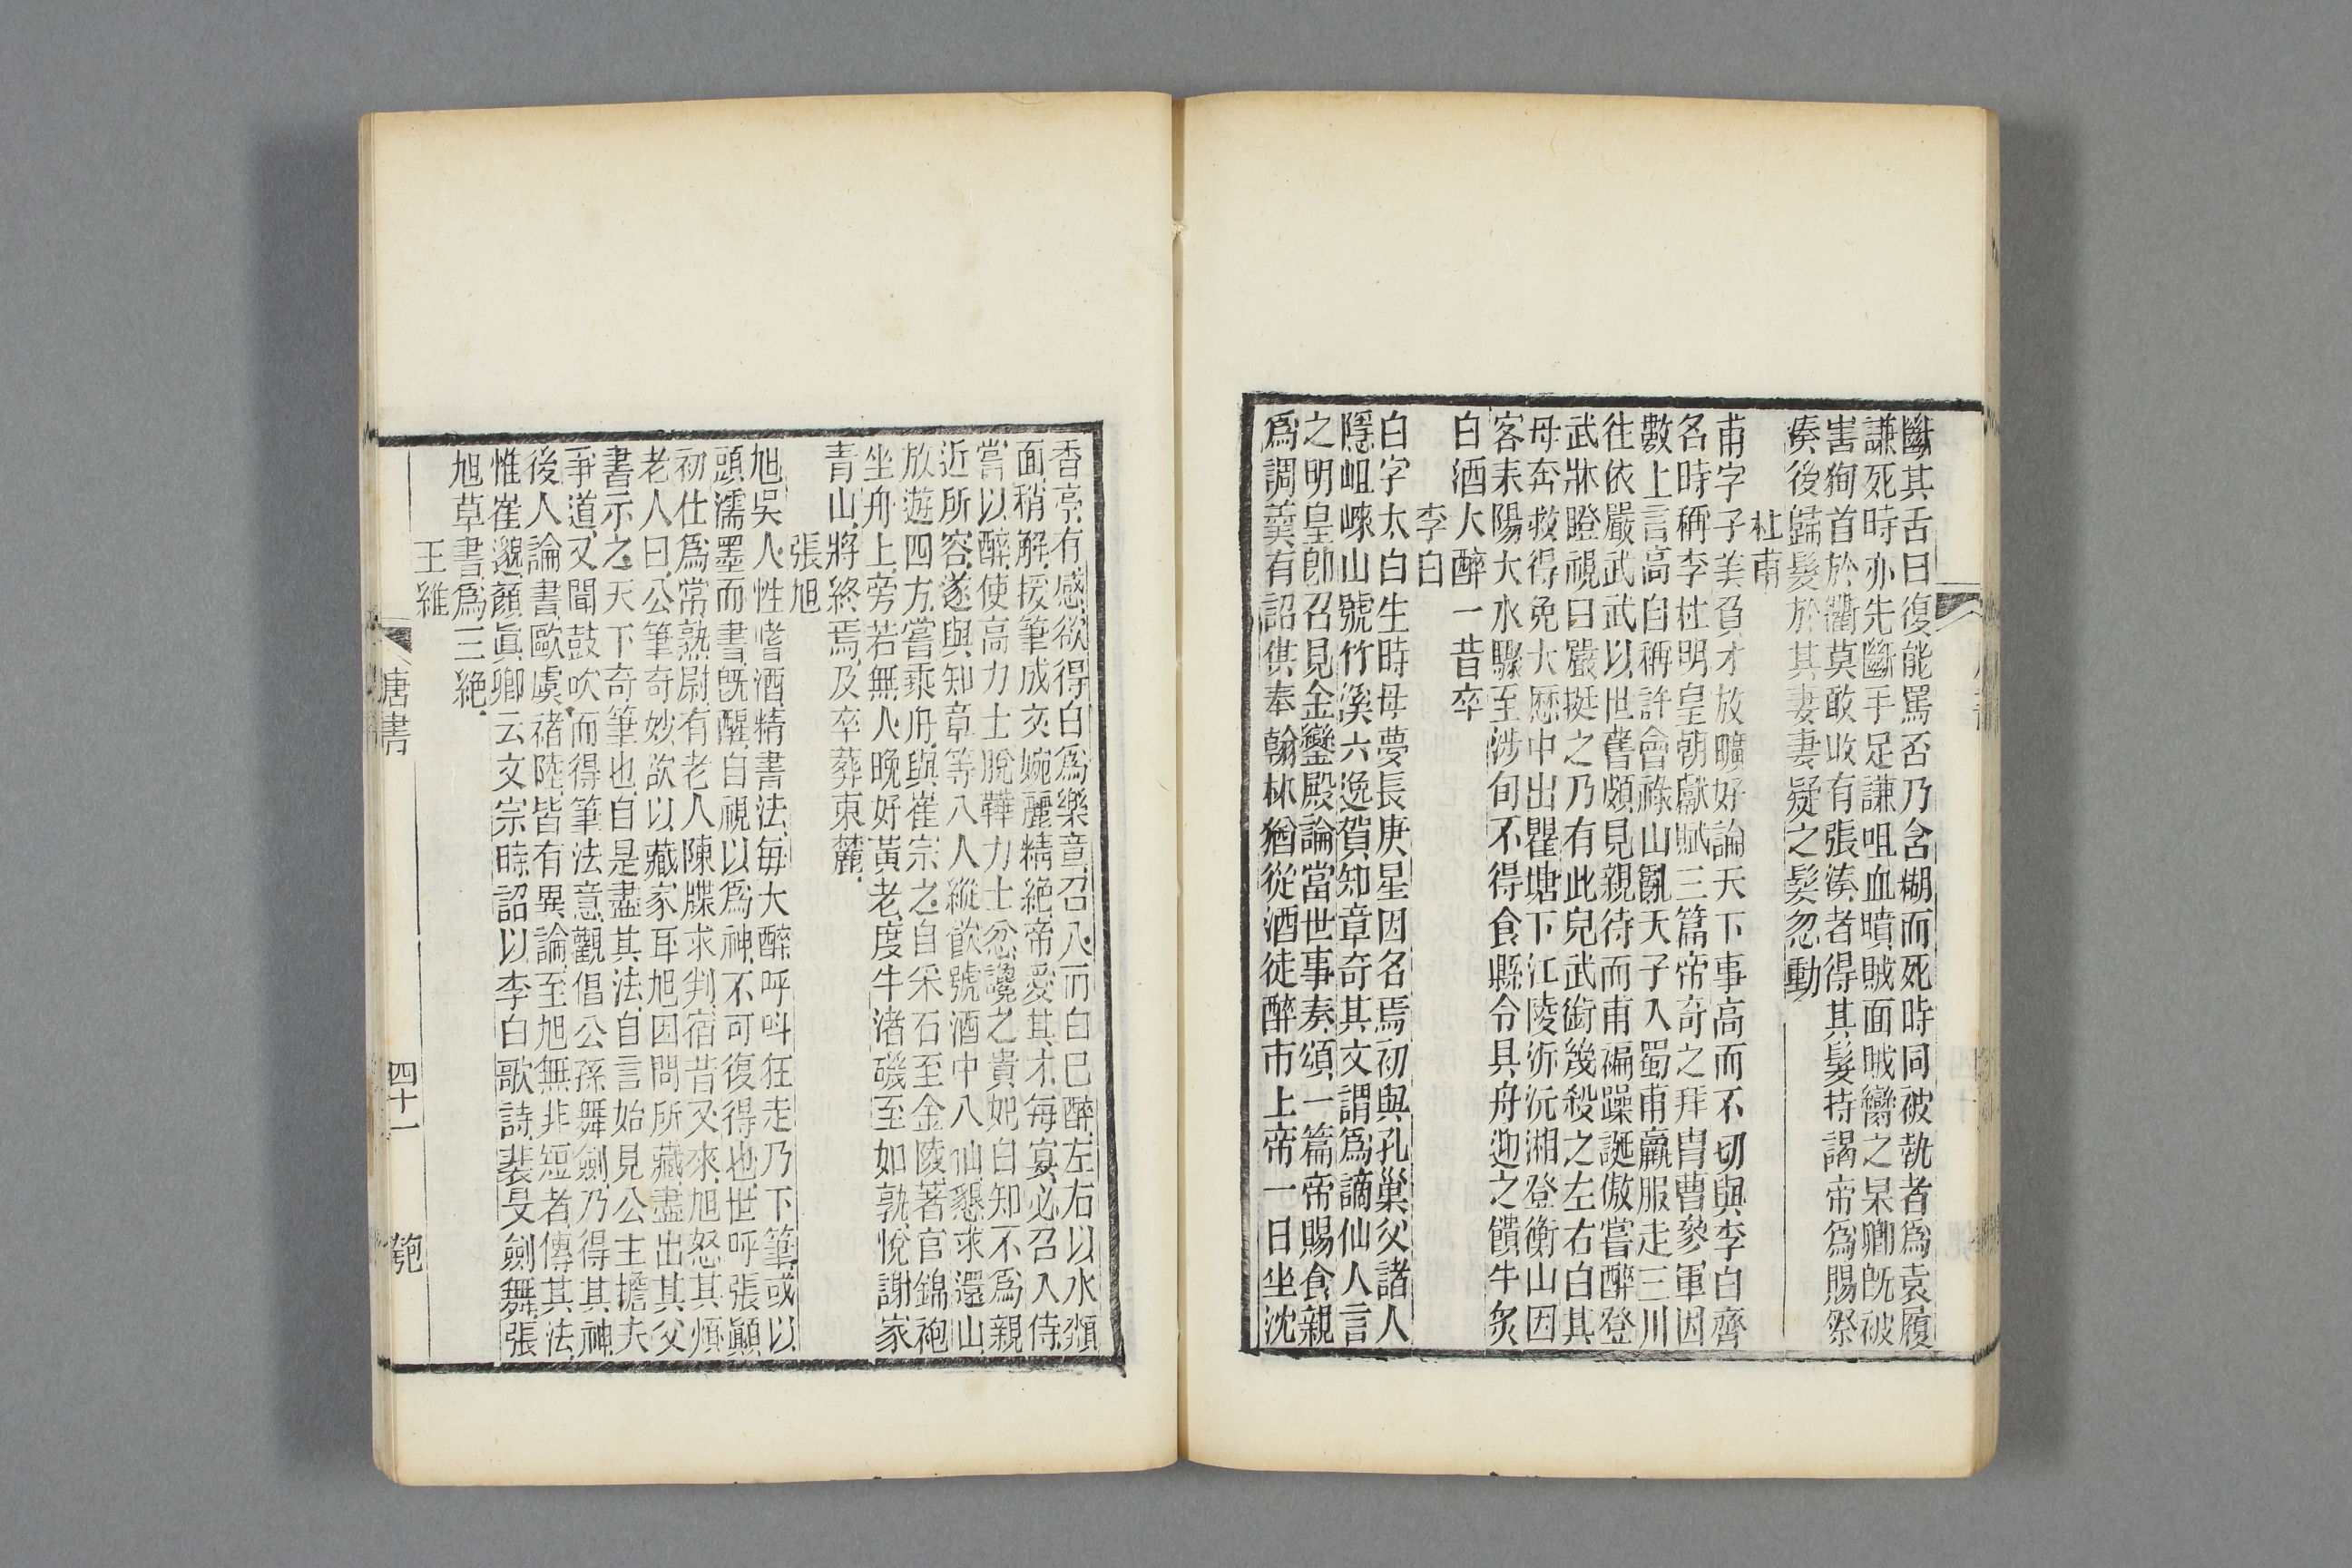 斷其舌曰復能罵否乃含糊而死時同被執者爲袁履
謙死時亦先斷手足謙咀血噴賊面賊臠之杲卿旣被
害狥首於衢莫敢收有張湊者得其髮持謁帝爲賜祭
湊後歸髮於其妻妻疑之髮忽動
杜甫
甫字子美負才放曠好論天下事高而不切與李白齊
名時稱李杜明皇朝獻賦三篇帝奇之拜胄曹參軍因
數上言高自稱許會祿山亂天子入蜀甫羸服走三川
往依嚴武武以世舊頗見親待而甫褊躁誕傲嘗醉登
武牀瞪視曰嚴挺之乃有此兒武銜幾殺之左右白其
母奔救得免大歷中出瞿塘下江陵泝沅湘登衡山因
客耒陽大水驟至涉旬不得食縣令具舟迎之饋牛炙
白酒大醉一昔卒
李白
白字太白生時母夢長庚星因名焉初與孔巢父諸人
隱岨崍山號竹溪六逸賀知章奇其文謂爲謫仙人言
之明皇卽召見金鑾殿論當世事奏頌一篇帝賜食親
爲調羹有詔供奉翰林猶從酒徒醉市上帝一日坐沈
香亭有感欲得白爲樂章召入而白巳醉左右以水頮
面稍解援筆成文婉麗精絶帝愛其才每宴必召入侍
嘗以醉使高力士脫鞾力士忿讒之貴妃白知不爲親
近所容遂與知章等八人縱飮號酒中八仙懇求還山
放遊四方嘗乘舟與崔宗之自采石至金陵著官錦袍
坐舟上旁若無人晚好黃老度牛渚磯至姑孰悅謝家
青山將終焉及卒葬東麓
張旭
旭吳人性嗜酒精書法每大醉呼呌狂走乃下筆或以
頭濡墨而書旣醒自視以爲神不可復得也世呼張顚
初仕爲常熟尉有老人陳牒求判宿昔又來旭怒其煩
老人曰公筆奇妙欲以藏家耳旭因問所藏盡出其父
書示之天下奇筆也自是盡其法自言始見公主擔夫
爭道又聞鼓吹而得筆法意觀倡公孫舞劍乃得其神
後人論書歐虞褚陸皆有異論至旭無非短者傳其法
惟崔邈顏眞卿云文宗時詔以李白歌詩裴旻劍舞張
旭草書爲三絶
王維
唐書
四十一